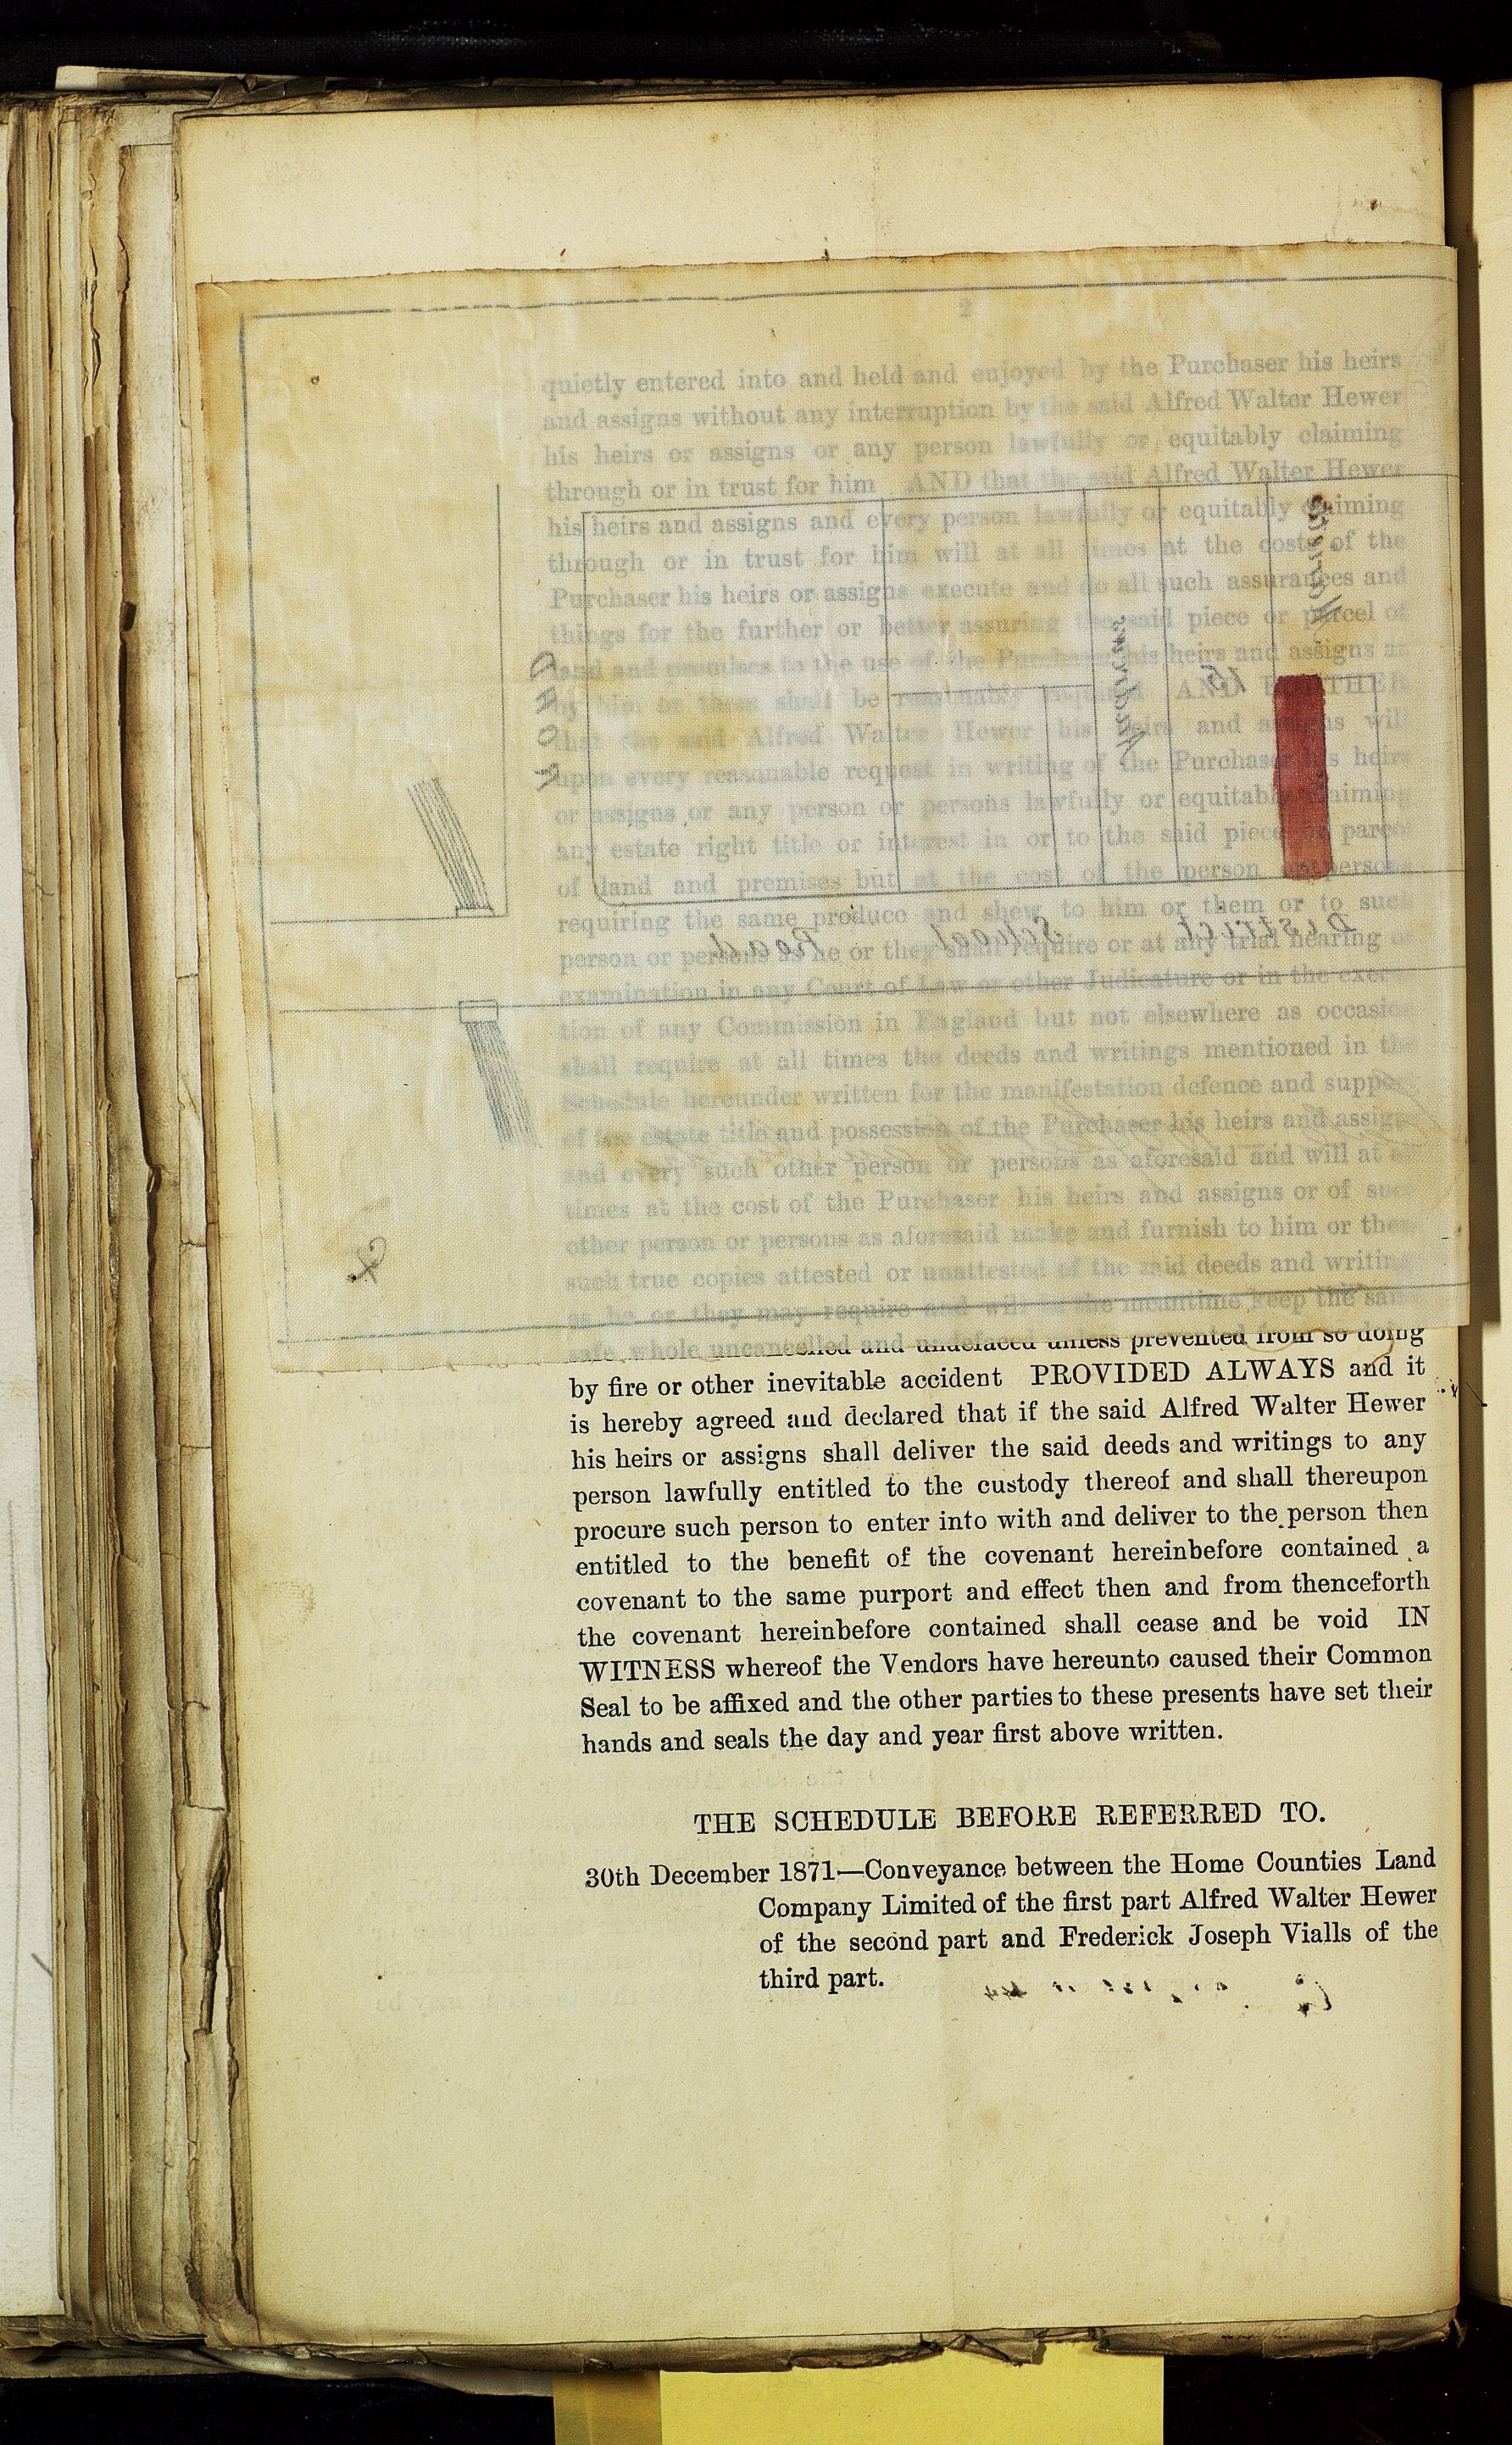 2
quietly entered into and held and enjoyed by the Purchaser his heirs
and assigns without any interruption by the said Alfred Walter Hewer
his heirs or assigns or any person lawfully or equitably claiming
through or in trust for him AND that the said Alfred Walter Hewer
his heirs and assigns and every person lawfully or equitably claiming
through or in trust for him will at all times at the costs of the
Purchaser his heirs or assigns execute and do all such assurances and
things for the further or better assuring the said piece or parcel of
land and premises to the use of the Purchaser his heirs and assigns as
by him or them shall be reasonably required AND FURTHER
that the said Alfred Walter Hewer his heirs and assigns will
upon every reasonable request in writing of the Purchaser his heirs
or assigns or any person or persons lawfully or equitably claiming
any estate right title or interest in or to the said piece or parcel
of land and premises but at the cost of the person or persons
requiring the same produce and shew to him or them or to such
person or persons as he or they shall require or at any trial hearing or
examination in any Court of Law or other Judicature or in the execu-
tion of any Commission in England but not elsewhere as occasion
shall require at all times the deeds and writings mentioned in the
Schedule hereunder written for the manifestation defence and support
of the estate title and possession of the Purchaser his heirs and assigns
and every such other person or persons as aforesaid and will at all
times at the cost of the Purchaser his heirs and assigns or of such
other person or persons as aforesaid make and furnish to him or them
such true copies attested or unattested of the said deeds and writings
as he or they may require and will in the meantime keep the same
safe whole uncancelled and undefaced unless prevented from so doing
by fire or other inevitable accident PROVIDED ALWAYS and it
is hereby agreed and declared that if the said Alfred Walter Hewer
his heirs or assigns shall deliver the said deeds and writings to any
person lawfully entitled to the custody thereof and shall thereupon
procure such person to enter into with and deliver to the person then
entitled to the benefit of the covenant hereinbefore contained a
covenant to the same purport and effect then and from thenceforth
the covenant hereinbefore contained shall cease and be void IN
WITNESS whereof the Vendors have hereunto caused their Common
Seal to be affixed and the other parties to these presents have set their
hands and seals the day and year first above written.
THE SCHEDULE BEFORE REFERRED TO.
30th December 1871—Conveyance between the Home Counties Land
Company Limited of the first part Alfred Walter Hewer
of the second part and Frederick Joseph Vialls of the
third part.
ROAD
District School Road